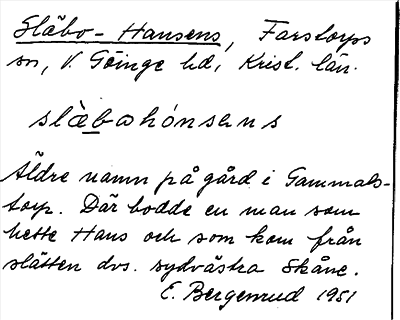 Släbo-Hansens, Farstorps
sn, V. Göinge hd, Krist. län.
slàbahónsens
Äldre namn på gård i Gammals-
torp. Där bodde en man som
hette Hans och som kom från
slätten dvs. sydvästra Skåne.
E. Bergenrud 1951